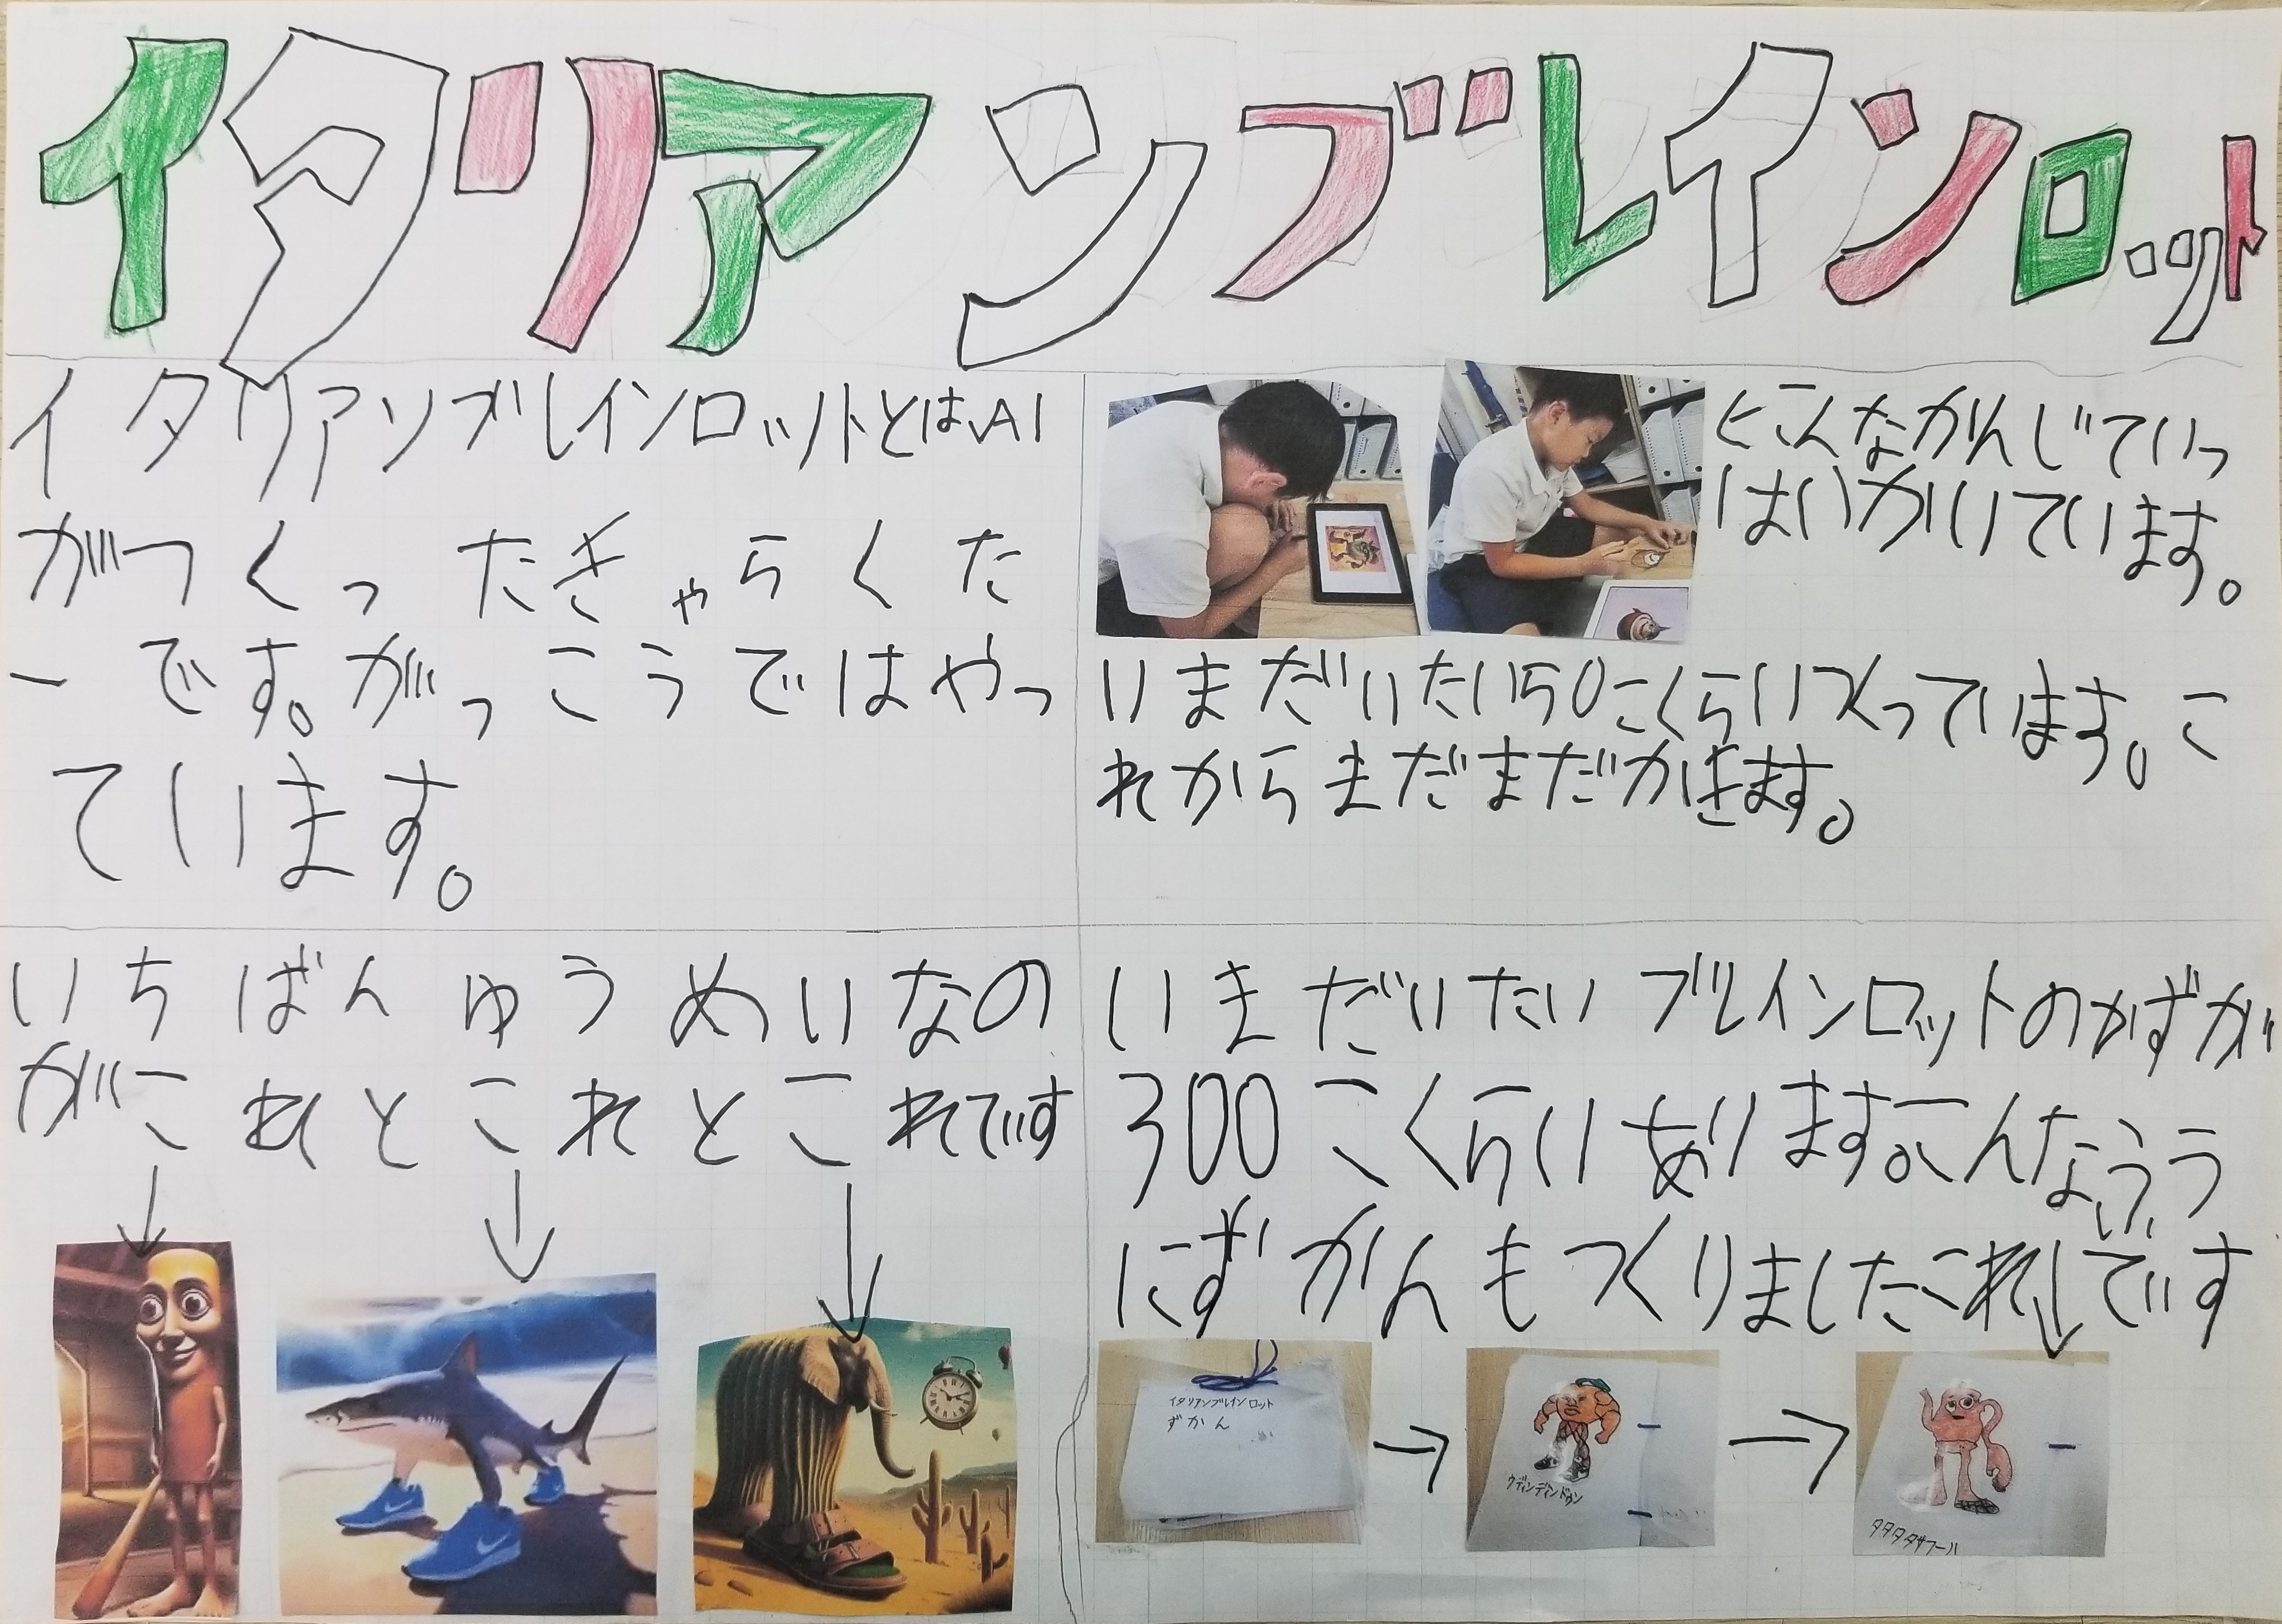 イタリアンブレインロット
イタリアンブレインロットとは、AI
がつくったきゃらくた
ーです。がっこうではやっ
ています。
とこんなかんじでいっ
ぱいかいています。
いまだいたい50こくらいつくっています。こ
れからまだまだかきます。
いちばんゆうめいなの
がこれとこれとこれです
いまだいたいブレインロットのかずが
300こくらいあります。こんなふう
にずかんもつくりましたこれです
イタリアンブレインロット
ずかん
ウディンディンドゥン
タタタタサフール